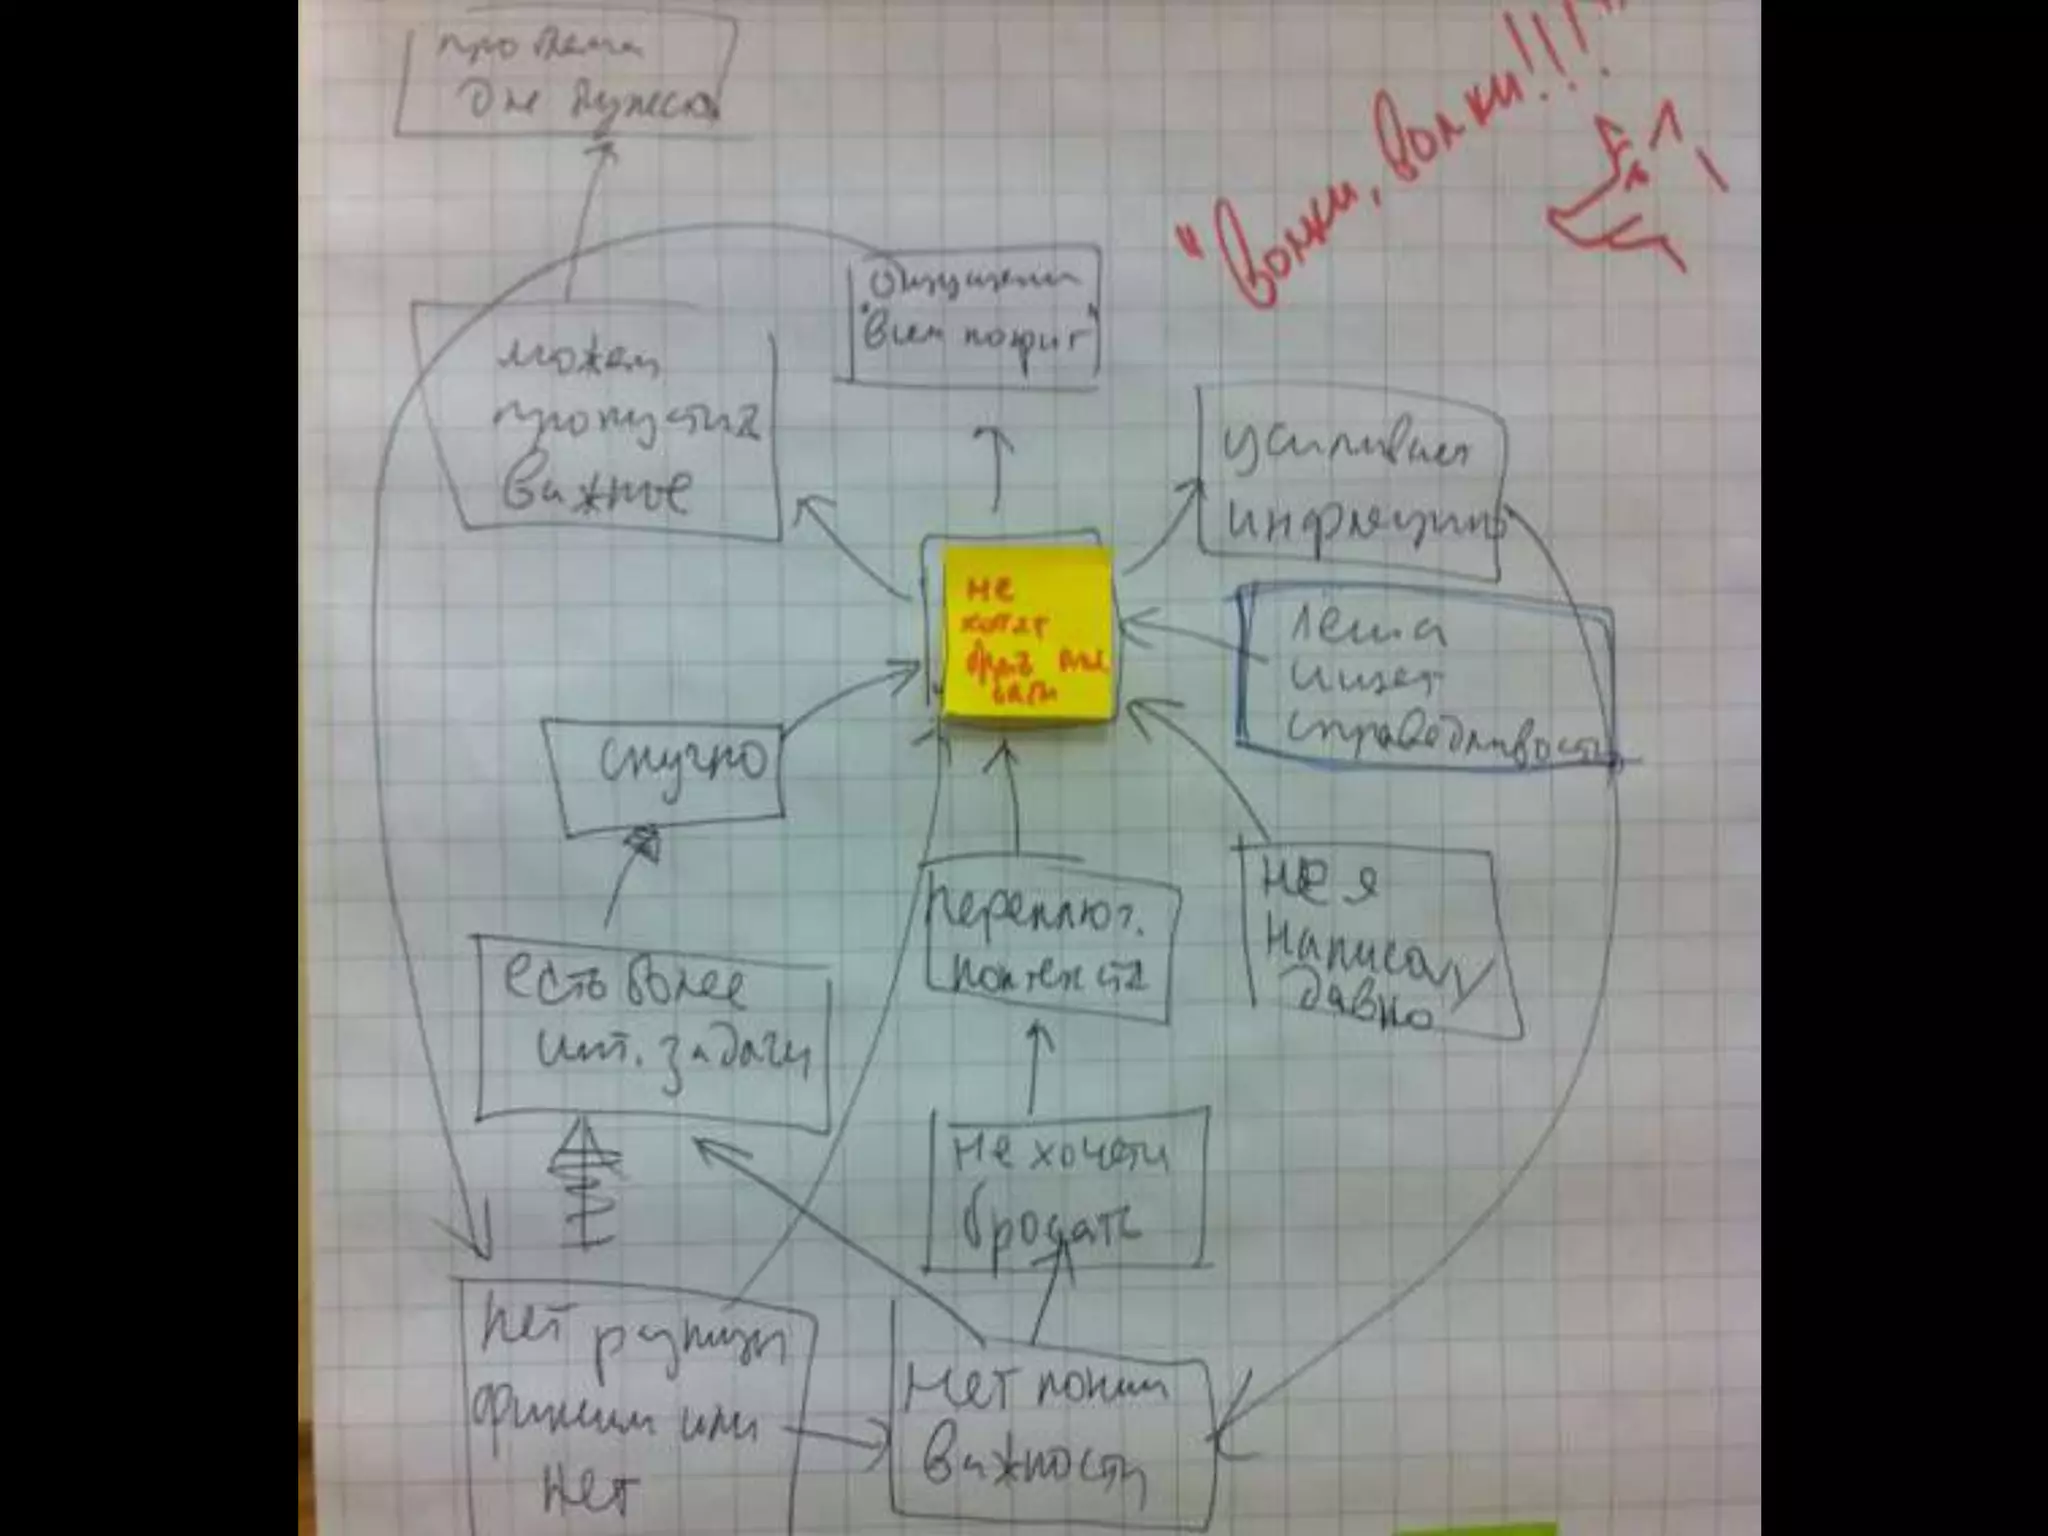 проблема
для бизнеса
"Волки, волки!!!"
ощущение
"всем пофиг"
можем
пропустить
важное
усиливает
инфляцию
не
хотят
брать
баги
Леша
ищет
справедливость
скучно
переключ.
контекста
не я
написал
давно
есть более
инт. задачи
не хочети
бросать
нет разницы
фиксим или
нет
нет поним
важности